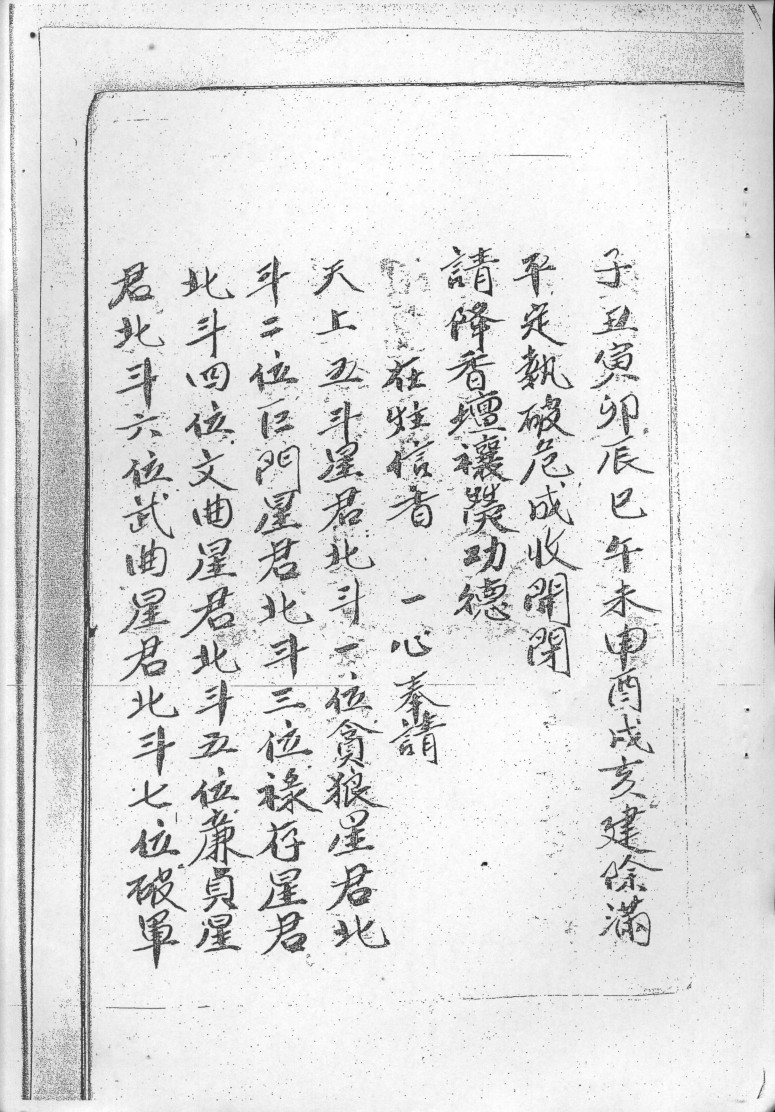 子丑寅卯辰巳午未申酉戌亥建除滿
平定執破危成收開閉
請降香壇禳熒功德
在壇信者 一心奉請
天上五斗星君北斗一位貪狼星君北
斗二位巨門星君北斗三位祿存星君
北斗四位文曲星君北斗五位廉貞星
君北斗六位武曲星君北斗七位破軍